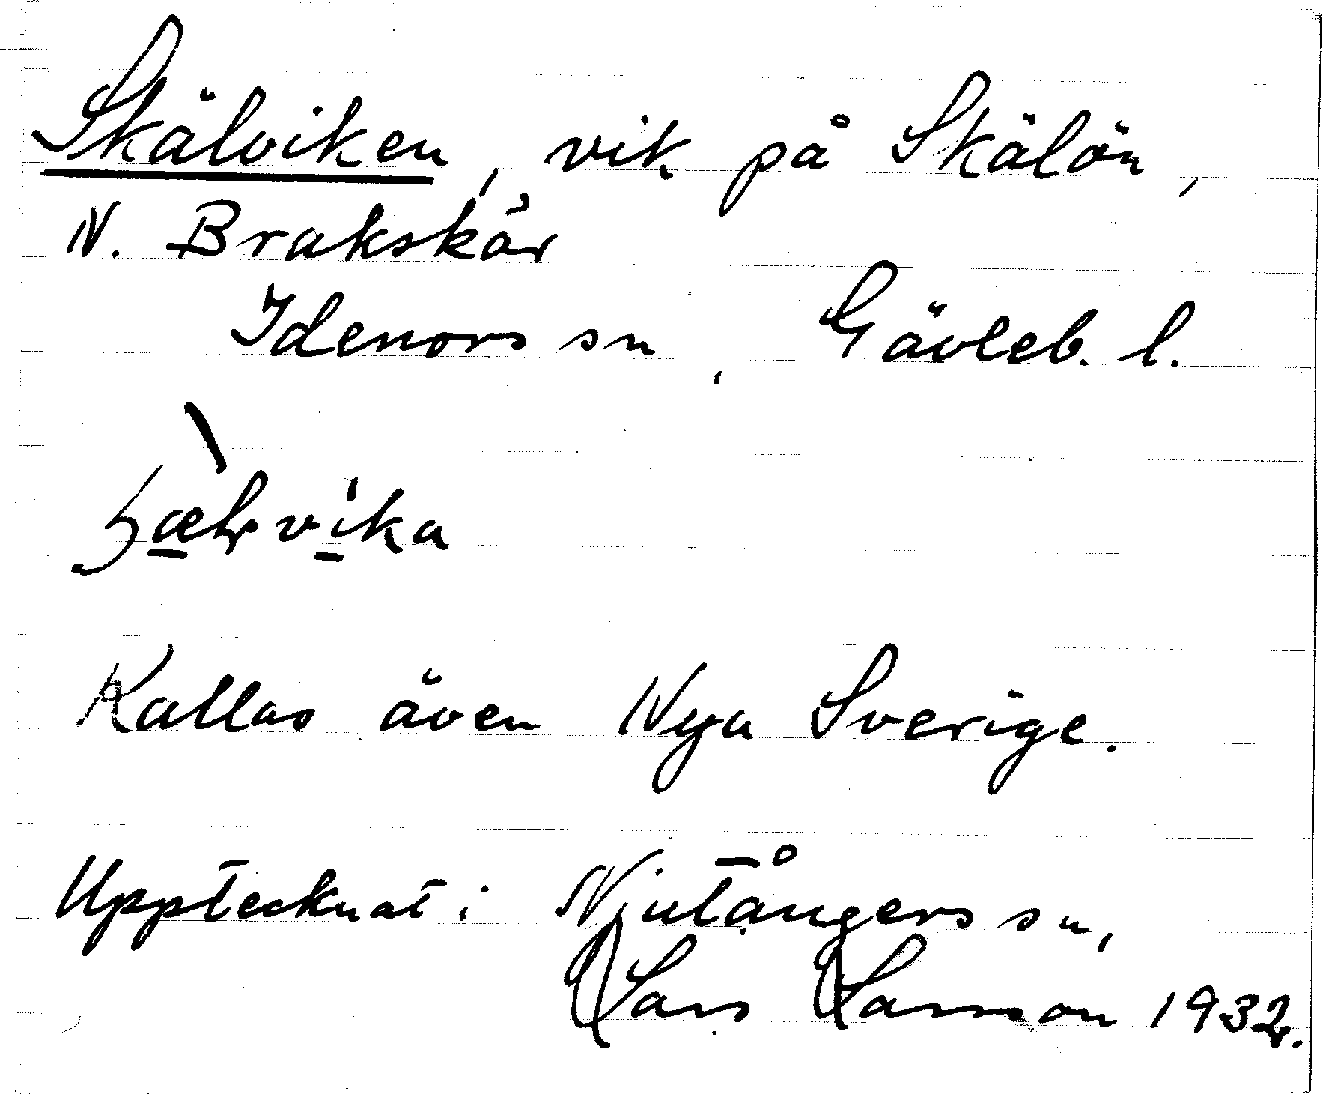 Skälviken, vik på Skälön,
N. Brakskär
Idenors sn, Gävleb. l.
Kallas även Nya Sverige.
Upptecknat i Njutångers sn,
Lars Larsson 1932.